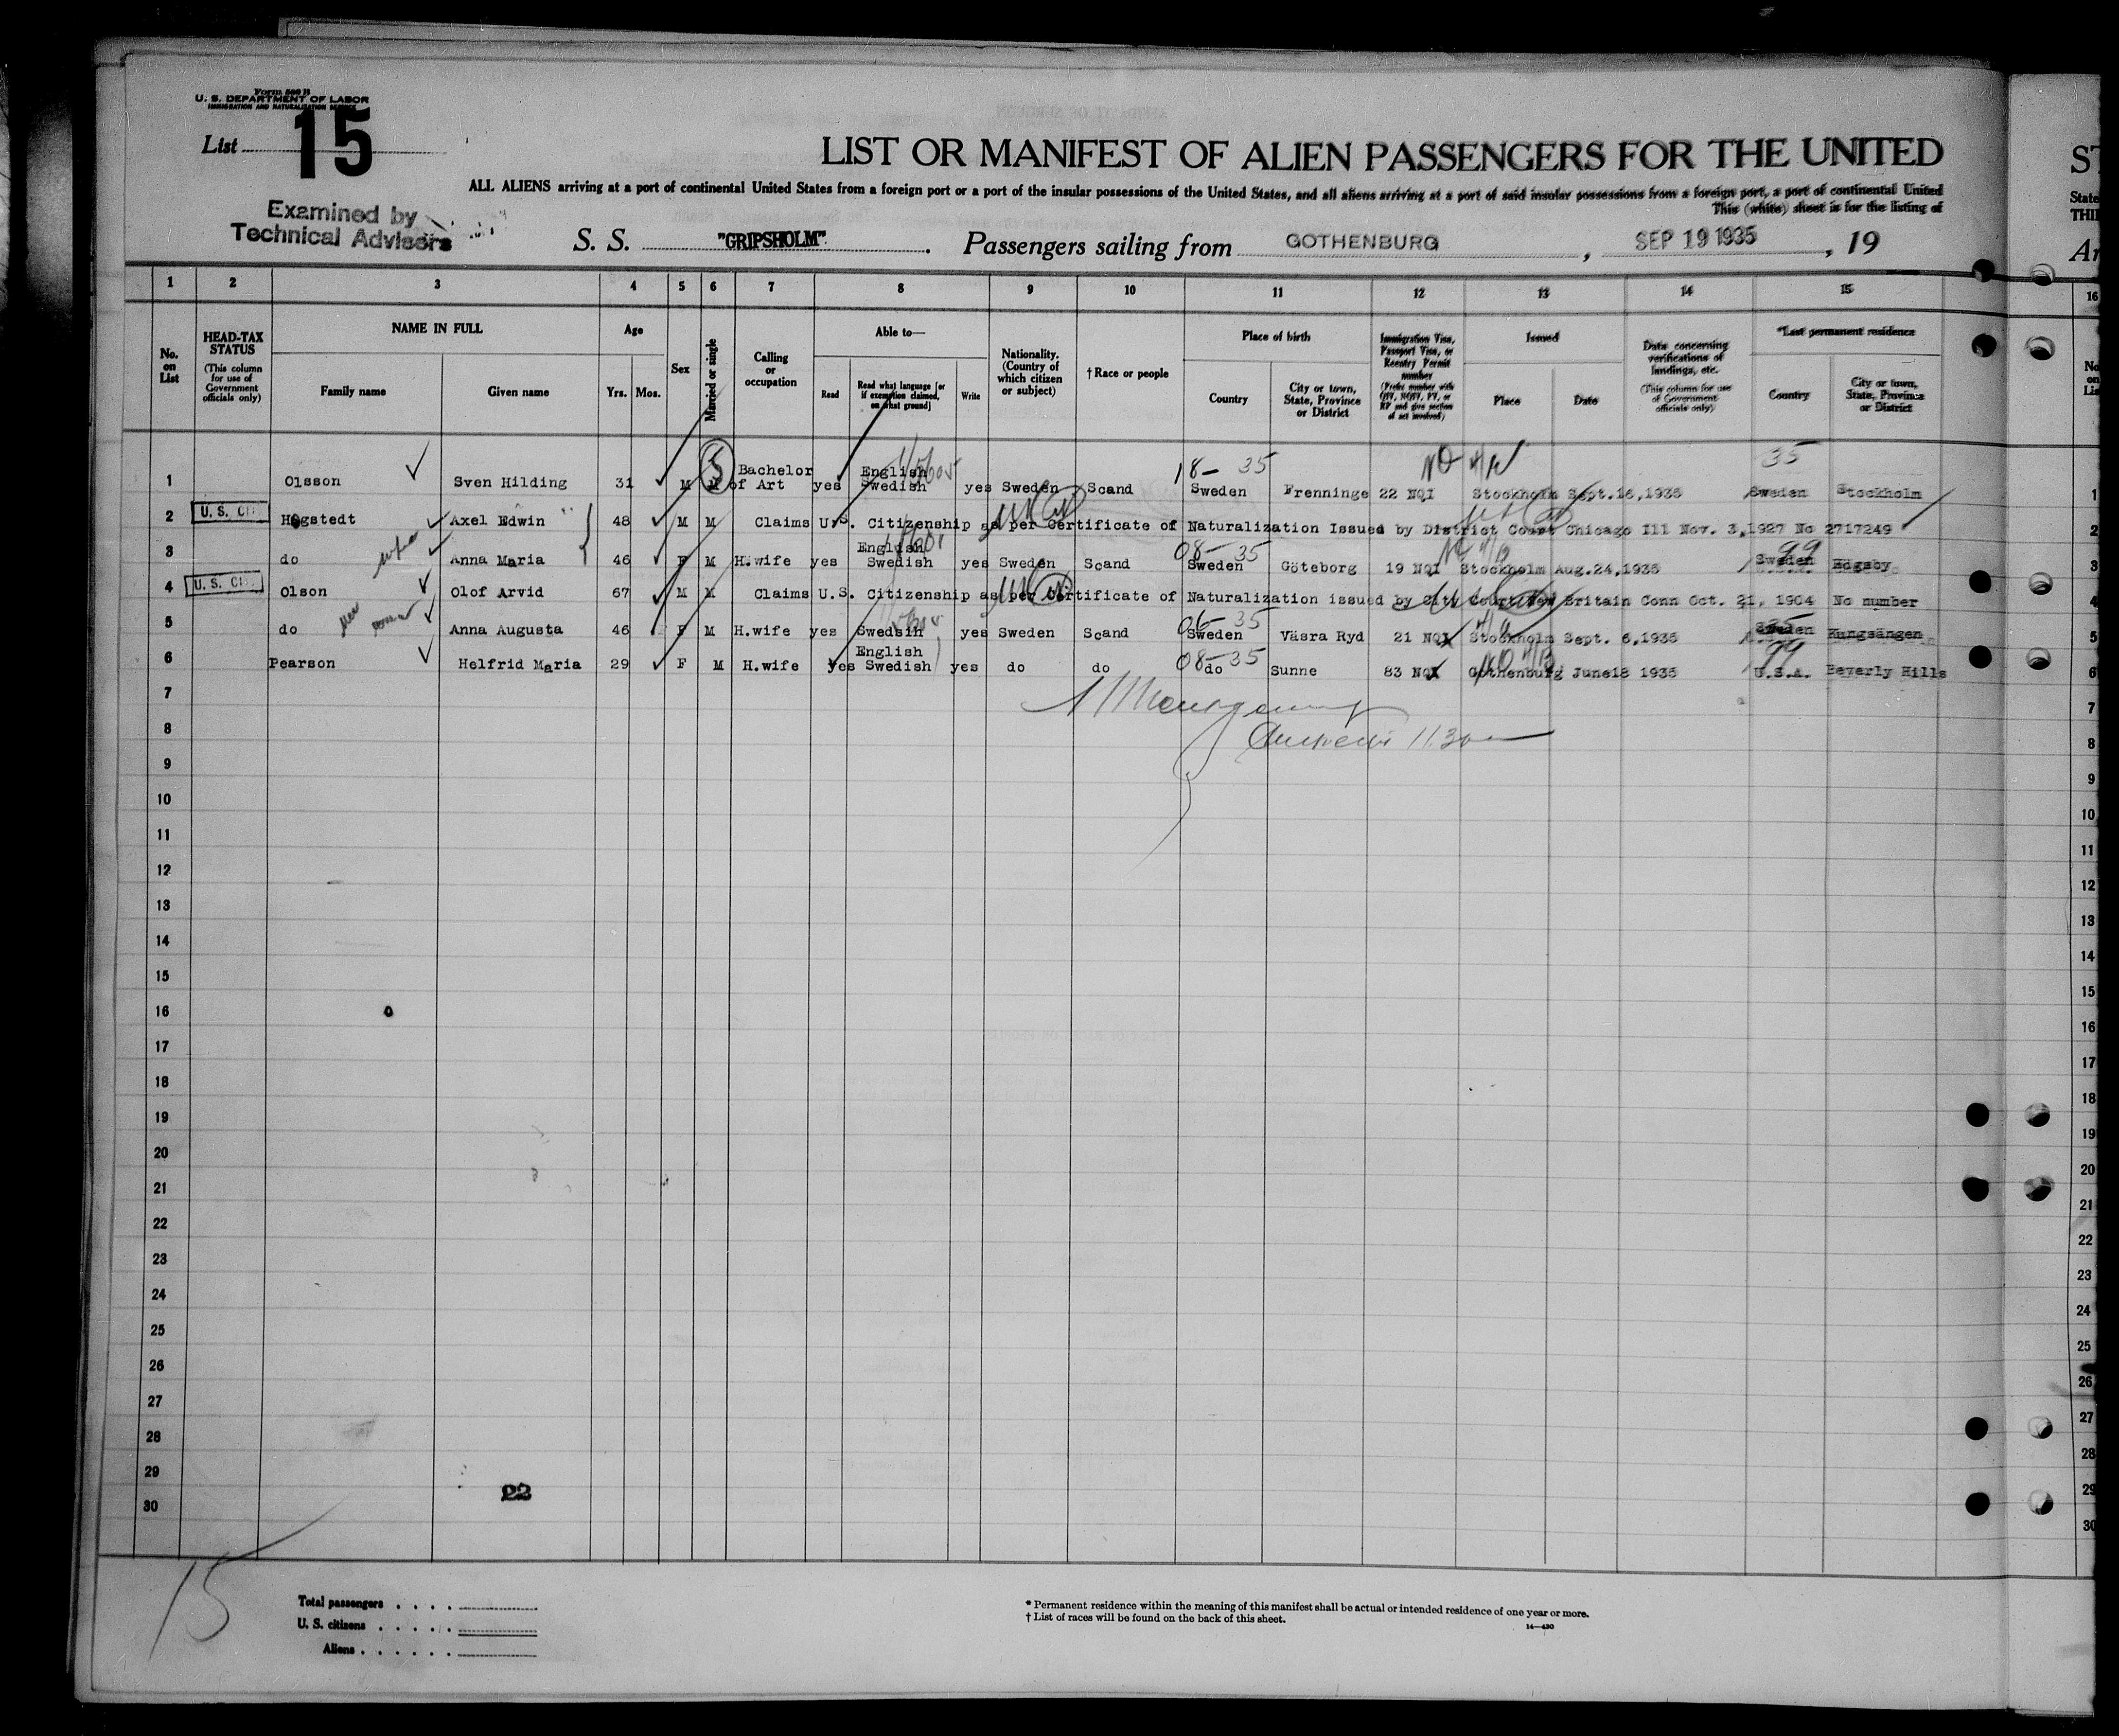 Form 500 B
U. S. DEPARTMENT OF LABOR
IMMIGRATION AND NATURALIZATION SERVICE
List 15
LIST OR MANIFEST OF ALIEN PASSENGERS FOR THE UNITED ST
ALL ALIENS arriving at a port of continental United States from a foreign port or a port of the insular possessions of the United States, and all aliens arriving at a port of said insular possessions from a foreign port, a port of continental United State
This (white) sheet is for the listing of THI
Examined by
Technical Advisers
S. S. "GRIPSHOLM". Passengers sailing from GOTHENBURG, SEP 19 1935, 19 Ar
1 2 3 4 5 6 7 8 9 10 11 12 13 14 15 16
No. on List
HEAD-TAX STATUS (This column for use of Government officials only)
NAME IN FULL
Family name Given name
Age
Yrs. Mos.
Sex
Married or single
Calling or occupation
Able to—
Read Read what language [or if exemption claimed, on what ground] Write
Nationality. (Country of which citizen or subject)
† Race or people
Place of birth
Country City or town, State, Province or District
Immigration Visa, Passport Visa, or Reentry Permit number (Prefix number with QIV, NQIV, PV, or RP and give section of act involved)
Issued
Place Date
Data concerning verifications of landings, etc. (This column for use of Government officials only)
*Last permanent residence
Country City or town, State, Province or District
No on Lis
18- 35 35
1 Olsson Sven Hilding 31 M M S Bachelor of Art yes English Swedish yes Sweden Scand Sweden Frenninge 22 NQI Stockholm Sept.16,1935 Sweden Stockholm 1
2 U. S. CI Högstedt Axel Edwin 48 M M Claims U.S. Citizenship as per Certificate of Naturalization Issued by District Court Chicago Ill Nov. 3,1927 No 2717249 2
08- 35 99
3 do wife Anna Maria 46 F M H.wife yes English Swedish yes Sweden Scand Sweden Göteborg 19 NQI Stockholm Aug.24,1935 Sweden Edgsby 3
4 U. S. CI Olson Olof Arvid 67 M M Claims U.S. Citizenship as per Certificate of Naturalization issued by City Court New Britain Conn Oct. 21, 1904 No number 4
06- 35 35
5 do Anna Augusta 46 F M H.wife yes Swedsih yes Sweden Scand Sweden Väsra Ryd 21 NQI Stockholm Sept. 6,1935 Sweden Kungsängen 5
08- 35 99
6 Pearson Helfrid Maria 29 F M H.wife yes English Swedish yes do do do Sunne 83 NQI Gothenburg June18 1935 U.S.A. Beverly Hills 6
7 7
8 8
9 9
10 10
11 11
12 12
13 13
14 14
15 15
16 16
17 17
18 18
19 19
20 20
21 21
22 22
23 23
24 24
25 25
26 26
27 27
28 28
29 29
30 30
22
15
Total passengers . . . .
U. S. citizens . . . . .
Aliens . . . . . .
* Permanent residence within the meaning of this manifest shall be actual or intended residence of one year or more.
† List of races will be found on the back of this sheet.
14—430